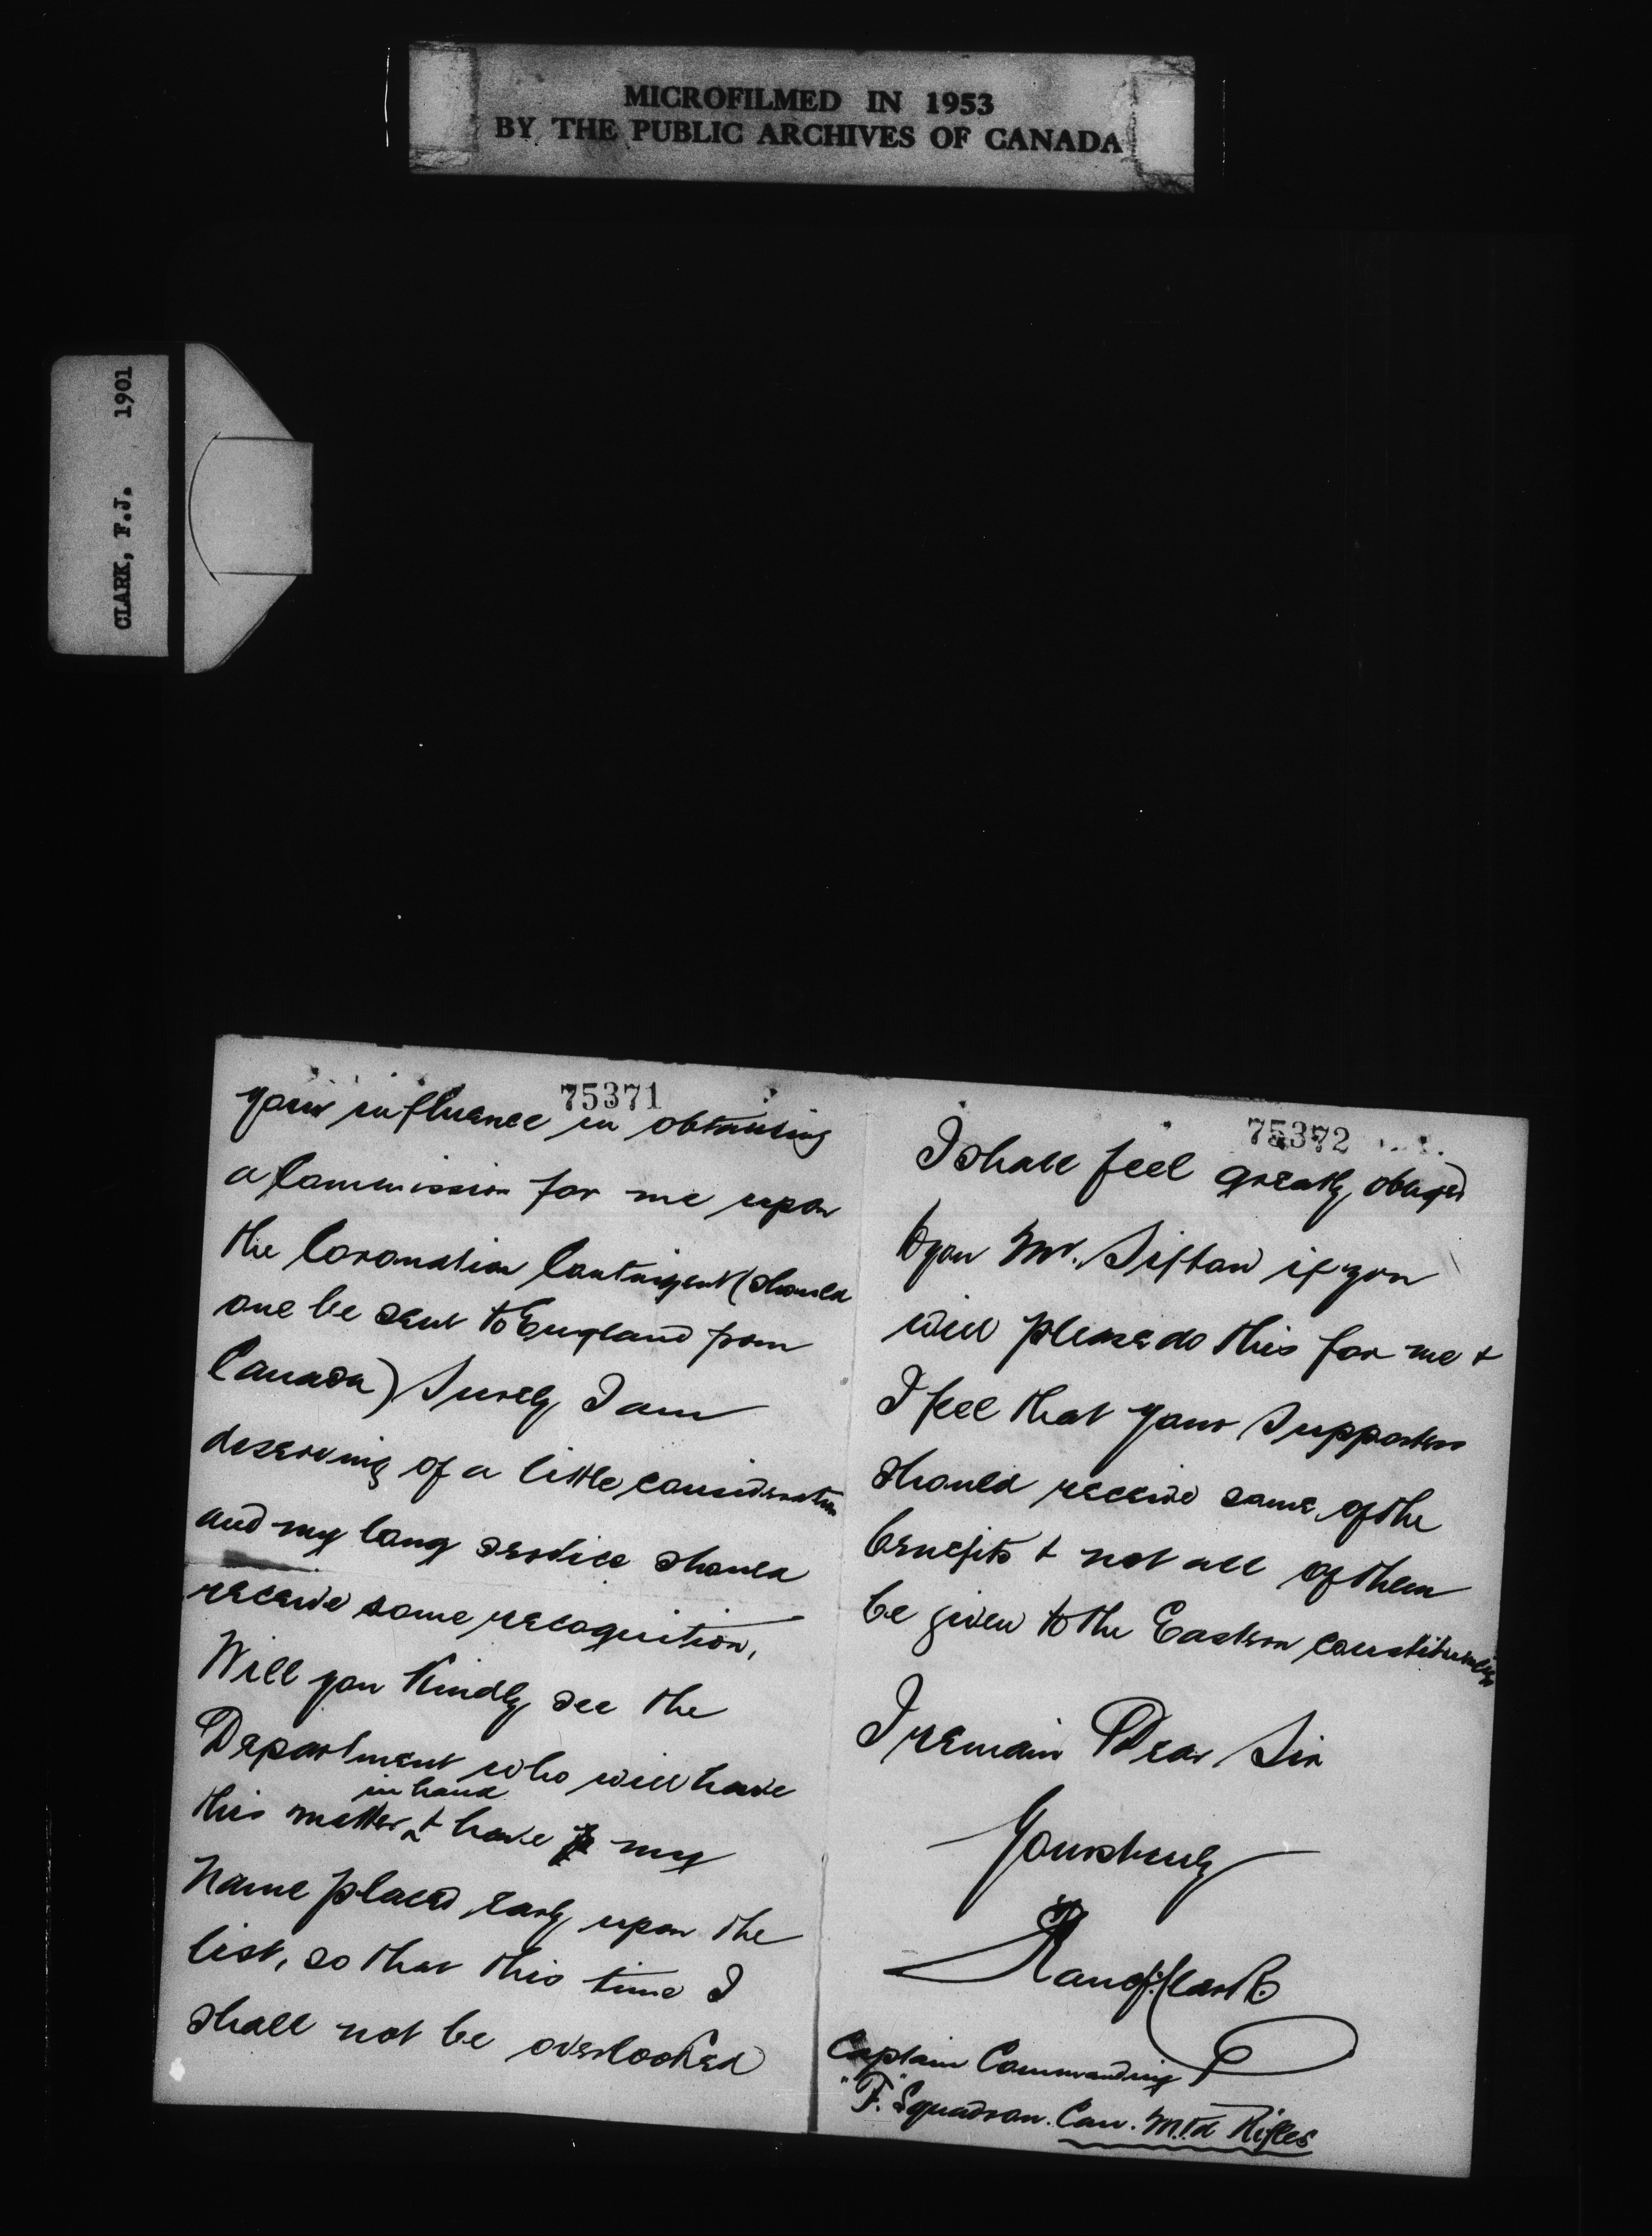 MICROFILMED IN 1953
BY THE PUBLIC ARCHIVES OF CANADA
CLARK, F.J. 1901
75371
your influence in obtaining
a Commission for me upon
the Coronation Contingent (should
one be sent to England from
Canada) Surely I am
deserving of a little consideration
and my long service should
receive some recognition,
Will you Kindly see the
Department who will have
in hand
this matter ^ & have my
name placed early upon the
list, so that this time I
shall not be overlooked
75372
I shall feel greatly obliged
to you Mr. Sifton if you
will please do this for me &
I feel that your supporters
should receive some of the
benefits & not all of them
be given to the Eastern constituencies
I remain Dear Sir
Yours truly
Clark
Captain Commanding
"F." Squadron. Can. Mtd Rifles